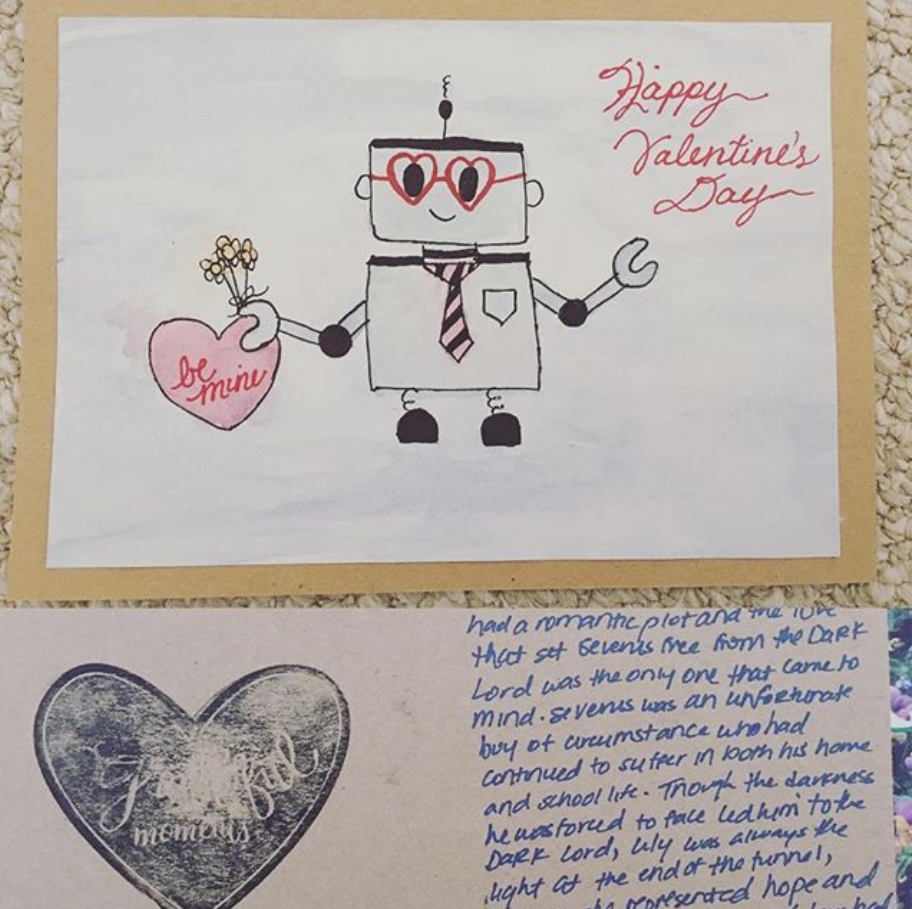 Happy
Valentine's
Day
be
mine
Grateful
moments
had a romantic plot and the love
that set Severus free from the Dark
Lord was the only one that came to
mind. Severus was an unfortunate
boy of circumstance who had
continued to suffer in both his home
and school life. Though the darkness
he was forced to face led him to the
Dark Lord, Lily was always the
light at the end of the tunnel,
represented hope and